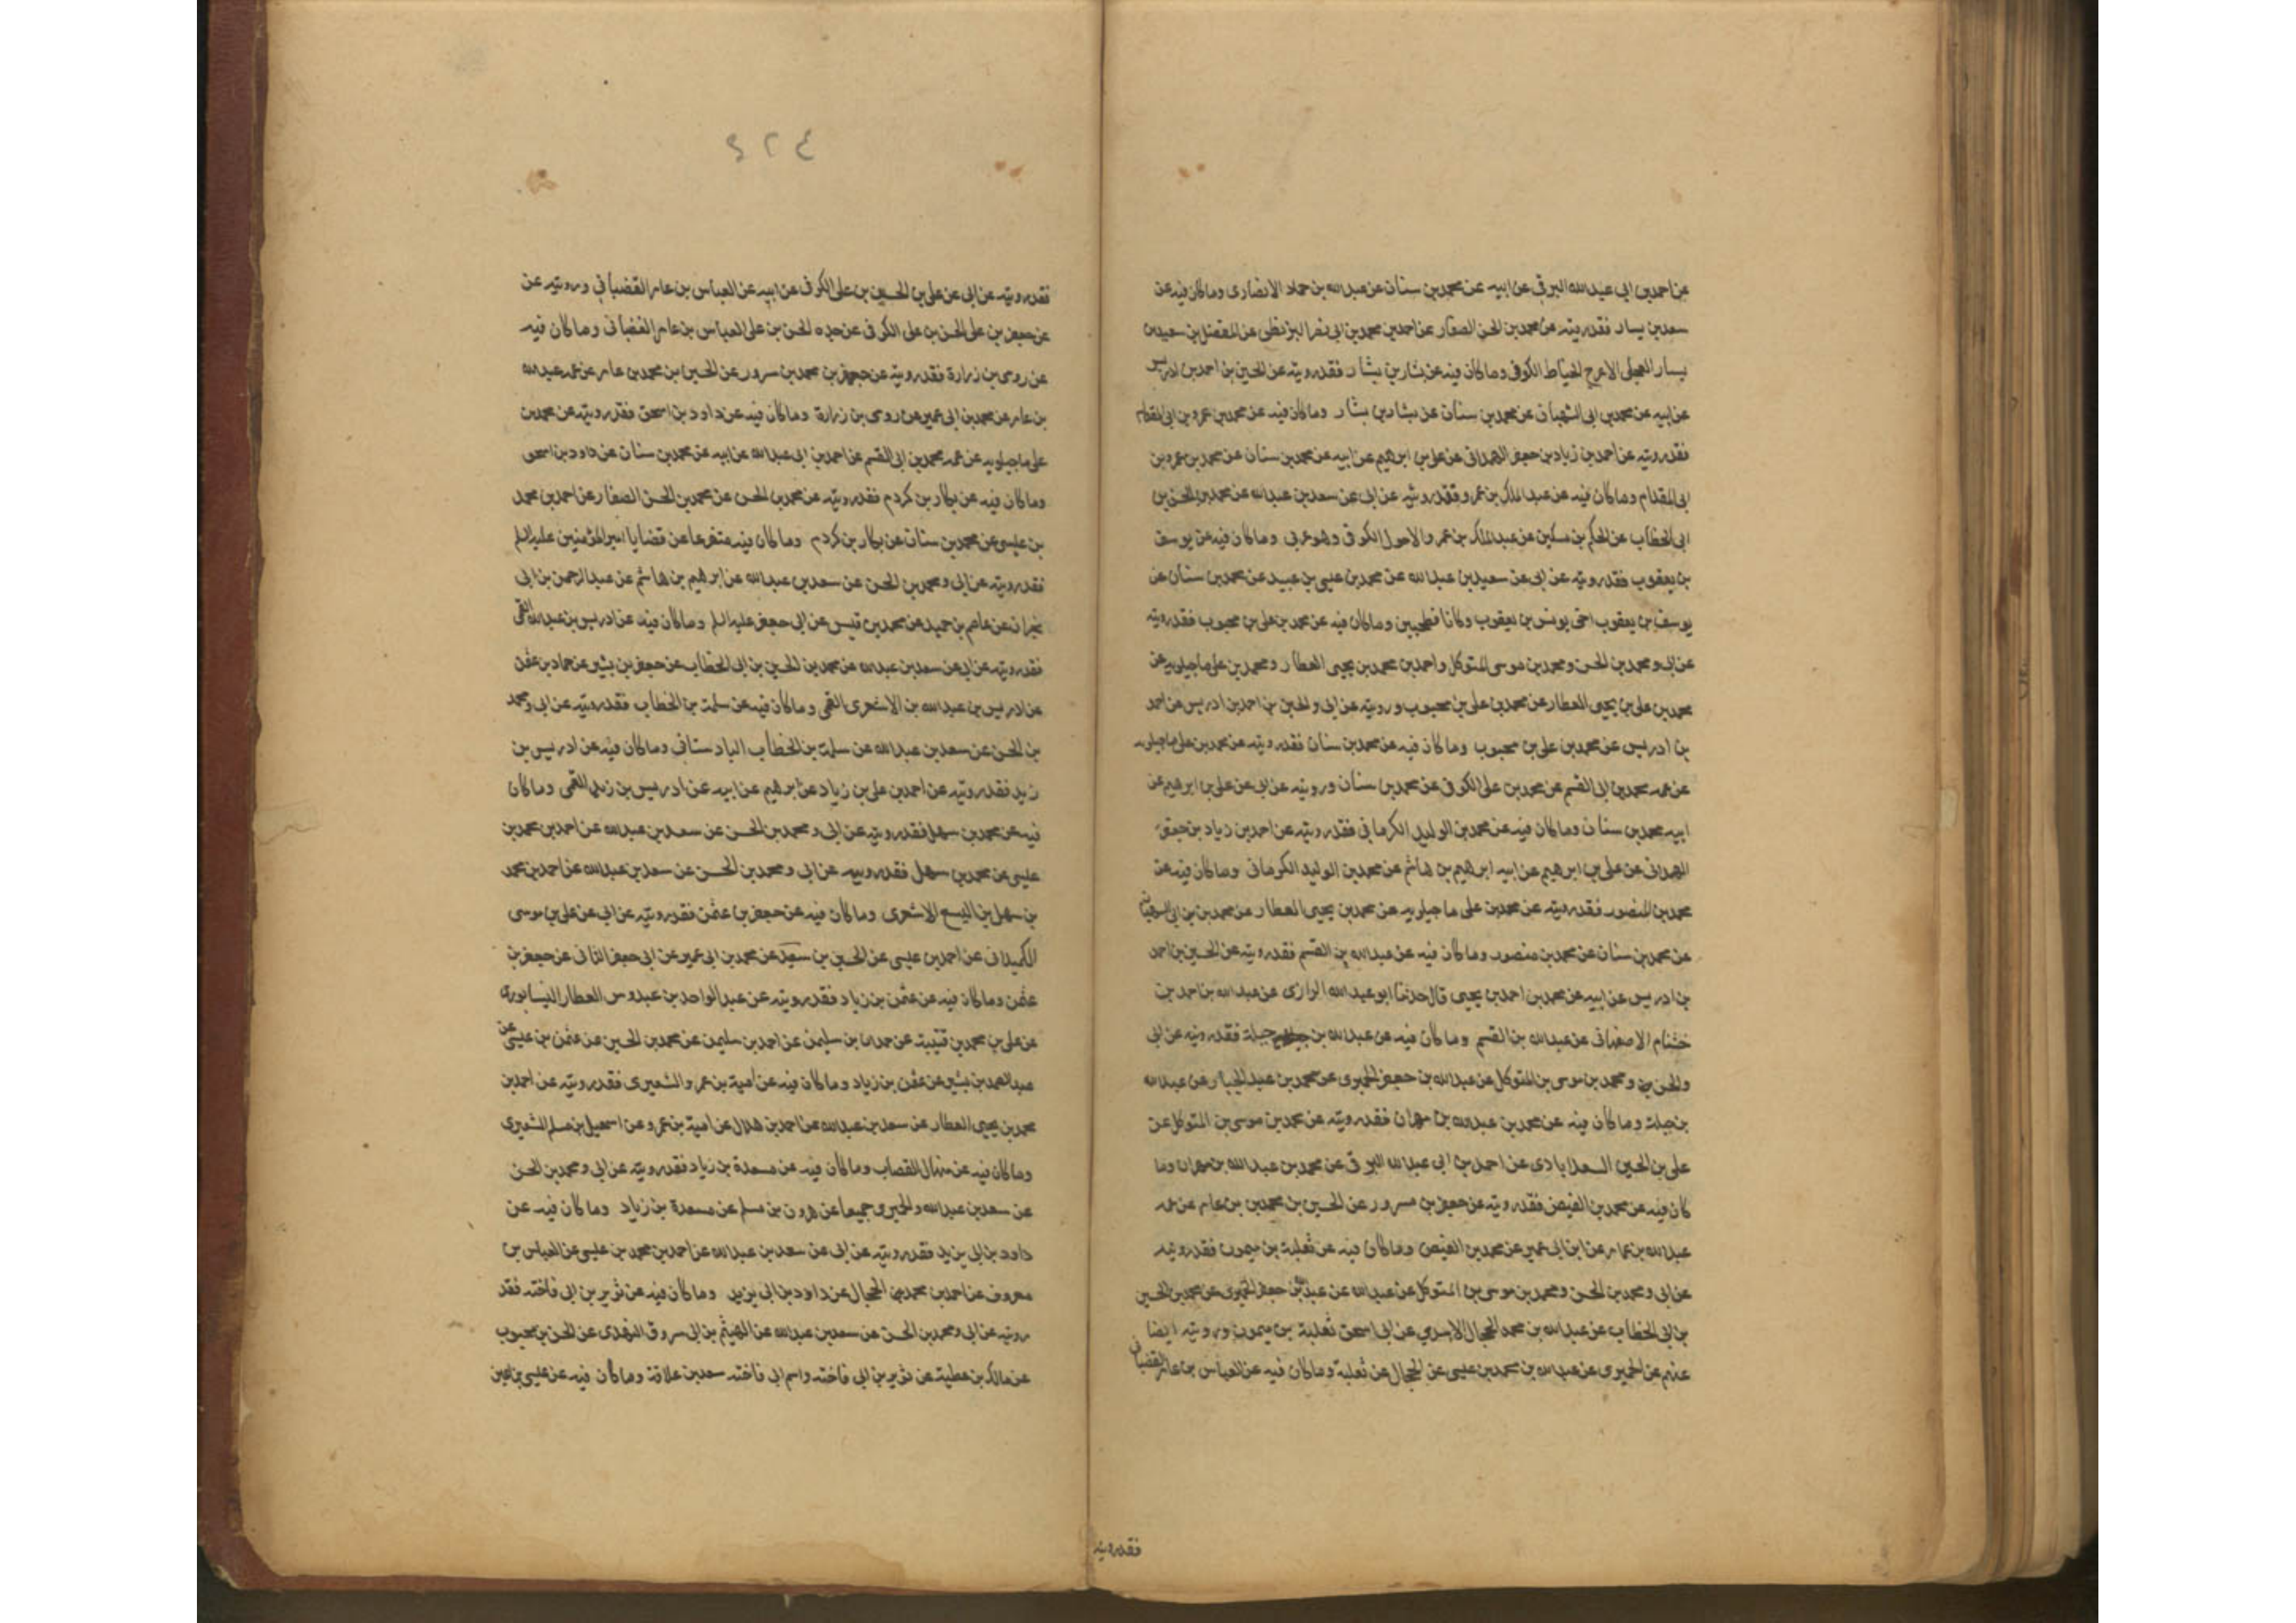 عن احمد بن ابى عبد الله البرقى عن ابيه عن محمد بن سنان عن عبد الله بن حماد الانصارى وما كان فيه عن
سعد بن يسار فقد رويته عن محمد بن الحسن الصفار عن احمد بن محمد بن ابى نصر البزنطى عن المفضل بن سعيد بن
يسار العجلى الاعرج الحناط الكوفى وما كان فيه عن بشار بن بشار فقد رويته عن الحسين بن احمد بن ادريس
عن ابيه عن محمد بن ابى الصهبان عن محمد بن سنان عن بشار بن بشار وما كان فيه عن محمد بن عمرو بن ابى المقدام
فقد رويته عن احمد بن زياد بن جعفر الهمدانى عن على بن ابرهيم عن ابيه عن محمد بن سنان عن محمد بن عمرو بن
ابى المقدام وما كان فيه عن عبد الملك بن عمرو فقد رويته عن ابى عن سعد بن عبد الله عن محمد بن الحسن بن
ابى الخطاب عن الحكم بن مسكين عن عبد الملك بن عمرو الاحول الكوفى وهو عربى وما كان فيه عن يوسف
بن يعقوب فقد رويته عن ابى عن سعيد بن عبد الله عن محمد بن عيسى بن عبيد عن محمد بن سنان عن
يوسف بن يعقوب اخى يونس بن يعقوب وكانا فطحيين وما كان فيه عن محمد بن على بن محبوب فقد رويته
عن ابى ومحمد بن الحسن ومحمد بن موسى المتوكل واحمد بن محمد بن يحيى العطار ومحمد بن على ماجيلويه عن
محمد بن على بن يحيى العطار عن محمد بن على بن محبوب ورويته عن ابى والحسين بن احمد بن ادريس عن احمد
بن ادريس عن محمد بن على بن محبوب وما كان فيه عن محمد بن سنان فقد رويته عن محمد بن على ماجيلويه
عن عمه محمد بن ابى القسم عن محمد بن على الكوفى عن محمد بن سنان ورويته عن ابى عن على بن ابرهيم عن
ابيه محمد بن سنان وما كان فيه عن محمد بن الوليد الكرمانى فقد رويته عن احمد بن زياد بن جعفر
الهمدانى عن على بن ابرهيم عن ابيه ابرهيم بن هاشم عن محمد بن الوليد الكرمانى وما كان فيه عن
محمد بن المنصور فقد رويته عن محمد بن على ماجيلويه عن محمد بن يحيى العطار عن محمد بن ابى الصهبان
عن محمد بن سنان عن محمد بن منصور وما كان فيه عن عبد الله بن القسم فقد رويته عن الحسين بن احمد
بن ادريس عن ابيه عن محمد بن احمد بن يحيى قال حدثنا ابو عبد الله الرازى عن عبد الله بن احمد بن
خشنام الاصفهانى عن عبد الله بن القسم وما كان فيه عن عبد الله بن جبلة فقد رويته عن ابى
والحسن ومحمد بن موسى بن المتوكل عن عبد الله بن جعفر الحميرى عن محمد بن عبد الجبار عن عبد الله
بن جبلة وما كان فيه عن محمد بن عبد الله بن مهران فقد رويته عن محمد بن موسى بن المتوكل عن
على بن الحسين السعدابادى عن احمد بن ابى عبد الله البرقى عن محمد بن عبد الله بن مهران وما
كان فيه عن محمد بن الفيض فقد رويته عن جعفر بن مسرور عن الحسين بن محمد بن عامر عن عمه
عبد الله بن عامر عن ابن ابى عمير عن محمد بن الفيض وما كان فيه عن ثعلبة بن ميمون فقد رويته
عن ابى ومحمد بن الحسن ومحمد بن موسى بن المتوكل عن عبد الله عن عبد الله بن جعفر الحميرى عن محمد بن الحسين
بن ابى الخطاب عن عبد الله بن محمد الحجال الاسدي عن ابى اسحق ثعلبة بن ميمون ورويته ايضا
عنهم عن الحميرى عن عبد الله بن محمد بن عيسى عن الحجال عن ثعلبة وما كان فيه عن العباس بن عامر القضبانى
فقد رويته
٤٢٤
فقد رويته عن ابى عن على بن الحسين بن على الكوفى عن ابيه عن العباس بن عامر القضبانى ورويته عن
عن جعفر بن على الحسن بن على الكوفى عن جده الحسن بن على العباس بن عامر القضبانى وما كان فيه
عن روى بن زرارة فقد رويته عن جعفر بن محمد بن سرور عن الحسين بن محمد بن عامر عن عمه عبد الله
بن عامر عن محمد بن ابى عمير عن روى بن زرارة وما كان فيه عن داود بن اسحق فقد رويته عن محمد بن
على ماجيلويه عن عمه محمد بن ابى القسم عن احمد بن ابى عبد الله عن ابيه عن محمد بن سنان عن داود بن اسحق
وما كان فيه عن بكار بن كردم فقد رويته عن محمد بن الحسن عن محمد بن الحسن الصفار عن احمد بن محمد
بن عيسى عن محمد بن سنان عن بكار بن كردم وما كان فيه متفرعا عن قضايا امير المؤمنين عليه السلم
فقد رويته عن ابى ومحمد بن الحسن عن سعد بن عبد الله عن ابرهيم بن هاشم عن عبد الرحمن بن ابى
نجران عن عاصم بن حميد عن محمد بن قيس عن ابى جعفر عليه السلم وما كان فيه عن ادريس بن عبد الله القمى
فقد رويته عن ابى عن سعد بن عبد الله عن محمد بن الحسين بن ابى الخطاب عن جعفر بن بشير عن حماد بن عثمن
عن ادريس بن عبد الله بن الاشعرى القمى وما كان فيه عن سلمة بن الخطاب فقد رويته عن ابى ومحمد
بن الحسن عن سعد بن عبد الله عن سلمة بن الخطاب البادستانى وما كان فيه عن ادريس بن
زيد فقد رويته عن احمد بن على بن زياد عن ابرهيم عن ابيه عن ادريس بن زيد القمى وما كان
فيه عن محمد بن سهل فقد رويته عن ابى ومحمد بن الحسن عن سعد بن عبد الله عن احمد بن محمد بن
عيسى عن محمد بن سهل فقد رويته عن ابى ومحمد بن الحسن عن سعد بن عبد الله عن احمد بن محمد
بن سهل بن اليسع الاشعرى وما كان فيه عن جعفر بن عثمن فقد رويته عن ابى عن على بن موسى
الكميدانى عن احمد بن عيسى عن الحسين بن سعيد عن محمد بن ابى عمير عن ابى جعفر الثانى عن جعفر بن
عثمن وما كان فيه عن عثمن بن زياد فقد رويته عن عبد الواحد بن عبدوس العطار النيسابورى
عن على بن محمد بن قتيبة عن حمدان بن سليمن عن احمد بن سليمن عن محمد بن الحسين عن عثمن بن عيسى عن
عبد الصمد بن بشير عن عثمن بن زياد وما كان فيه عن امية بن عمرو الشعيرى فقد رويته عن احمد بن
محمد بن يحيى العطار عن سعد بن عبد الله عن احمد بن هلال عن امية بن عمرو عن اسمعيل بن مسلم الشعيرى
وما كان فيه عن منهال القصاب وما كان فيه عن مسعدة بن زياد فقد رويته عن ابى ومحمد بن الحسن
عن سعد بن عبد الله والحميرى جميعا عن هرون بن مسلم عن مسعدة بن زياد وما كان فيه عن
داود بن ابى يزيد فقد رويته عن ابى عن سعد بن عبد الله عن احمد بن محمد بن عيسى عن العباس بن
معروف عن احمد بن محمد بن الحجال عن داود بن ابى يزيد وما كان فيه عن ثوير بن ابى فاخته فقد
رويته عن ابى ومحمد بن الحسن عن سعد بن عبد الله عن الهيثم بن ابى مسروق النهدى عن الحسن بن محبوب
عن مالك بن عطية عن ثوير بن ابى فاخته واسم ابى فاخته سعد بن علاقة وما كان فيه عن عيسى بن اعين